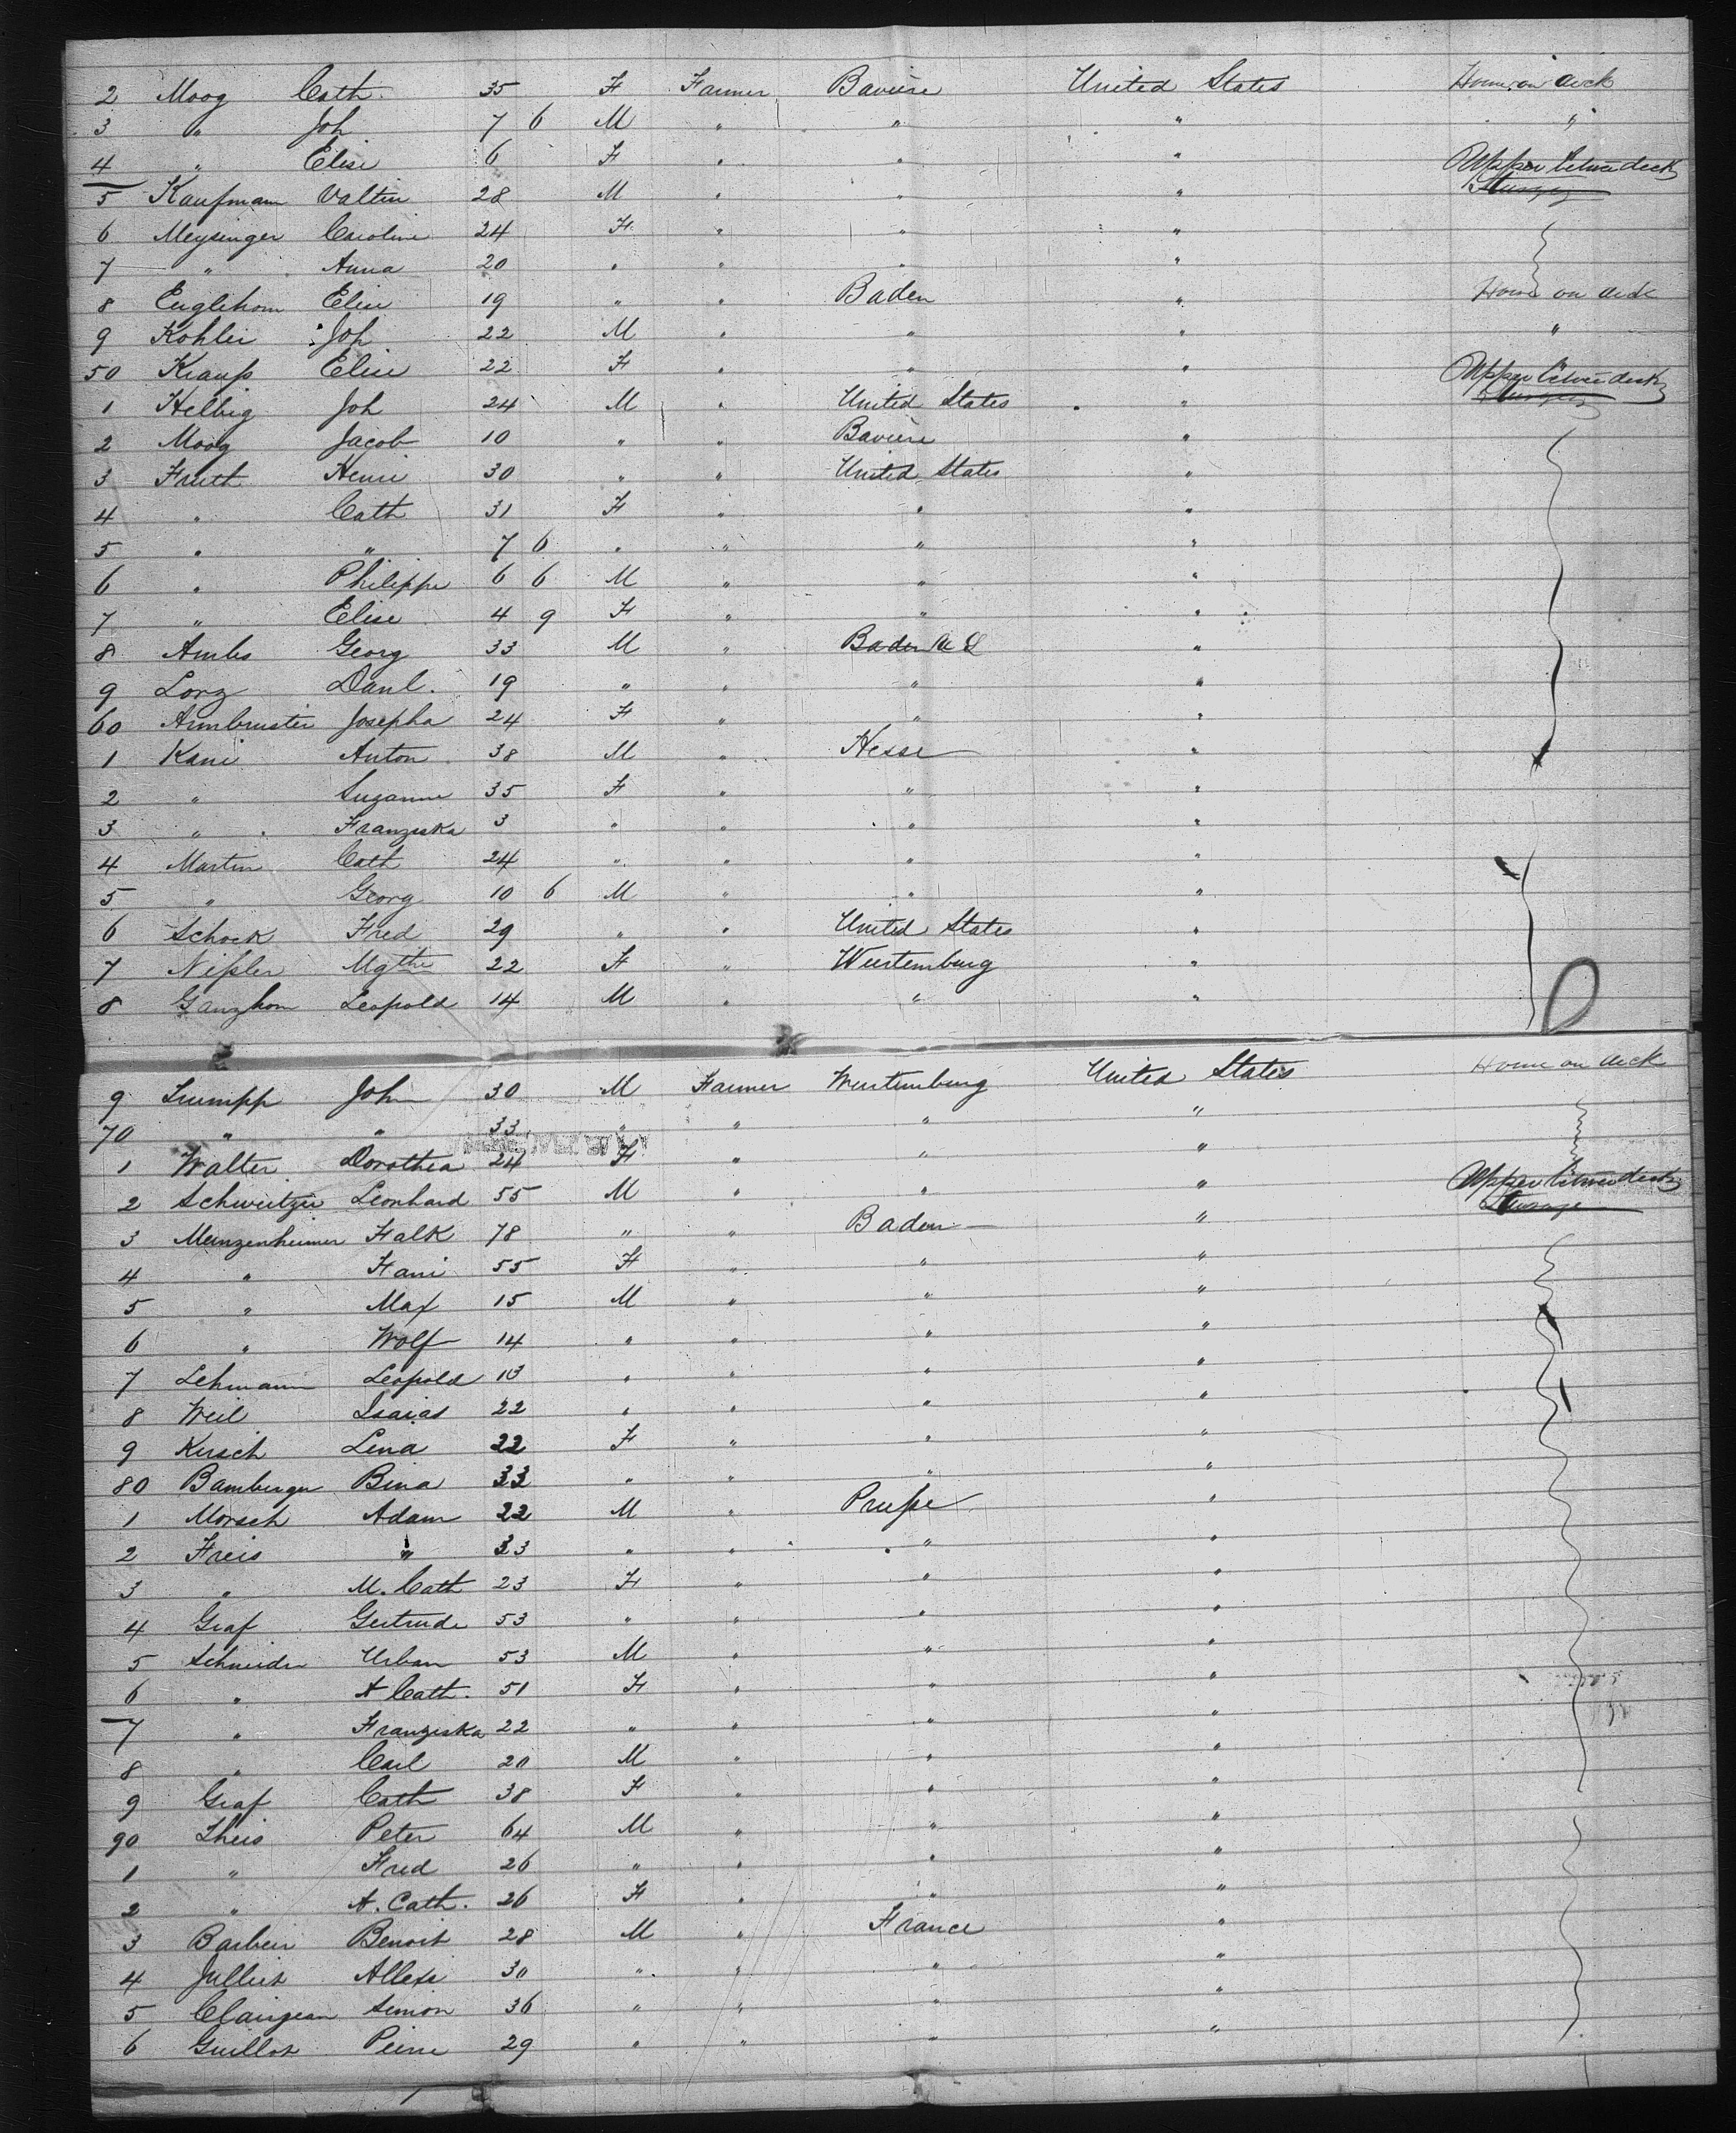 2 Moog Cath. 35 F Farmer Baviere United States House on deck
3 " Joh 7 6 M " " " "
4 " Elise 6 F " " " Upper between deck
5 Kaufmann Valtin 28 M " " "
6 Meysinger Caroline 24 F " " "
7 " Anna 20 " " " "
8 Englehorn Elise 19 " " Baden " House on deck
9 Kohler Joh 22 M " " " "
50 Kraus Elise 22 F " " " Upper between deck
1 Helbig Joh 24 M " United States "
2 Moog Jacob 10 " " Baviere "
3 Fruth Henri 30 " " United States "
4 " Cath 31 F " " "
5 " " 7 6 " " " "
6 " Philippe 6 6 M " " "
7 " Elise 4 9 F " " "
8 Ambs Georg 33 M " Baden "
9 Lorz Danl. 19 " " " "
60 Armbruster Josepha 24 F " " "
1 Kani Anton 38 M " Hesse "
2 " Suzanne 35 F " " "
3 " Franziska 3 " " " "
4 Martin Cath 24 " " " "
5 " Georg 10 6 M " " "
6 Schock Fred 29 " " United States "
7 Nißler Mgthe 22 F " Wurtemburg "
8 Ganzhorn Leopold 14 M " " "
9 Trumpp Joh 30 M Farmer Wurtemburg United States House on deck
70 " " 33 " " " "
1 Walter Dorothea 24 F " " "
2 Schweitzer Leonhard 55 M " " " Upper between deck
3 Munzenheimer Falk 78 " " Baden "
4 " Fani 55 F " " "
5 " Max 15 M " " "
6 " Wolf 14 " " " "
7 Lehmann Leopold 13 " " " "
8 Weil Isaias 22 " " " "
9 Kirsch Lina 22 F " " "
80 Bamberger Bina 33 " " " "
1 Morsch Adam 22 M " Prusse "
2 Freis " 33 " " " "
3 " M. Cath 23 F " " "
4 Graf Gertrude 53 " " " "
5 Schneider Urban 53 M " " "
6 " A Cath. 51 F " " "
7 " Franziska 22 " " " "
8 " Carl 20 M " " "
9 Graf Cath 38 F " " "
90 Theis Peter 64 M " " "
1 " Fred 26 " " " "
2 " A. Cath. 26 F " " "
3 Barbier Benoit 28 M " France "
4 Julliet 30 " " " "
5 Simon 36 " " " "
6 Guillot Peirre 29 " " " "